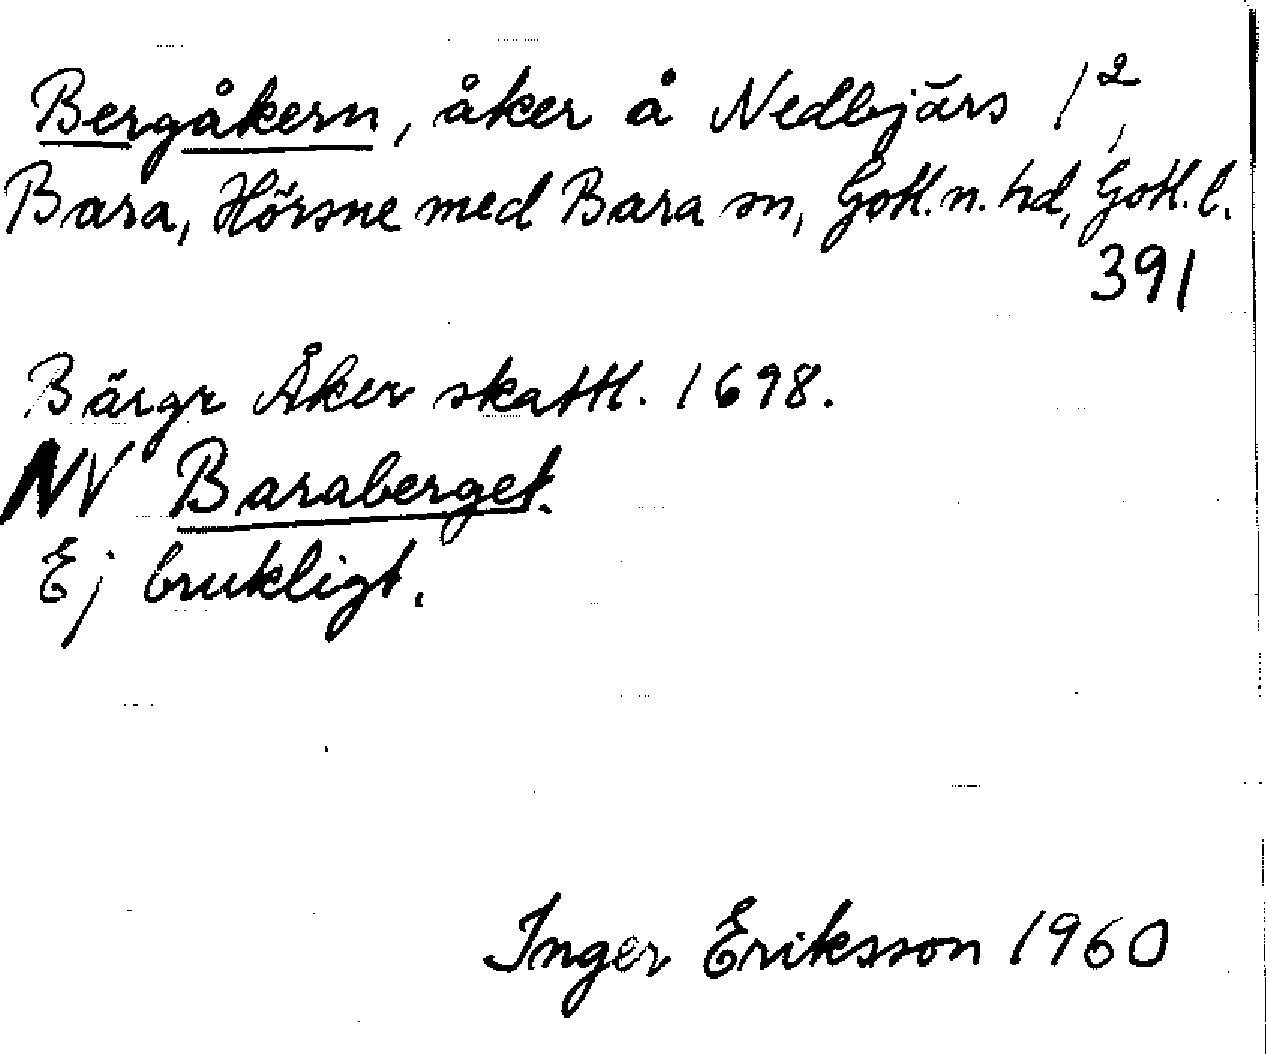 Bergåkern, åker å Nedbjärs 1²,
Bara, Hörsne med Bara sn, Gotl. n. hd, Gotl. l.
391
Bärgr Åker skattl. 1698.
NV Baraberget.
Ej brukligt.
Inger Eriksson 1960